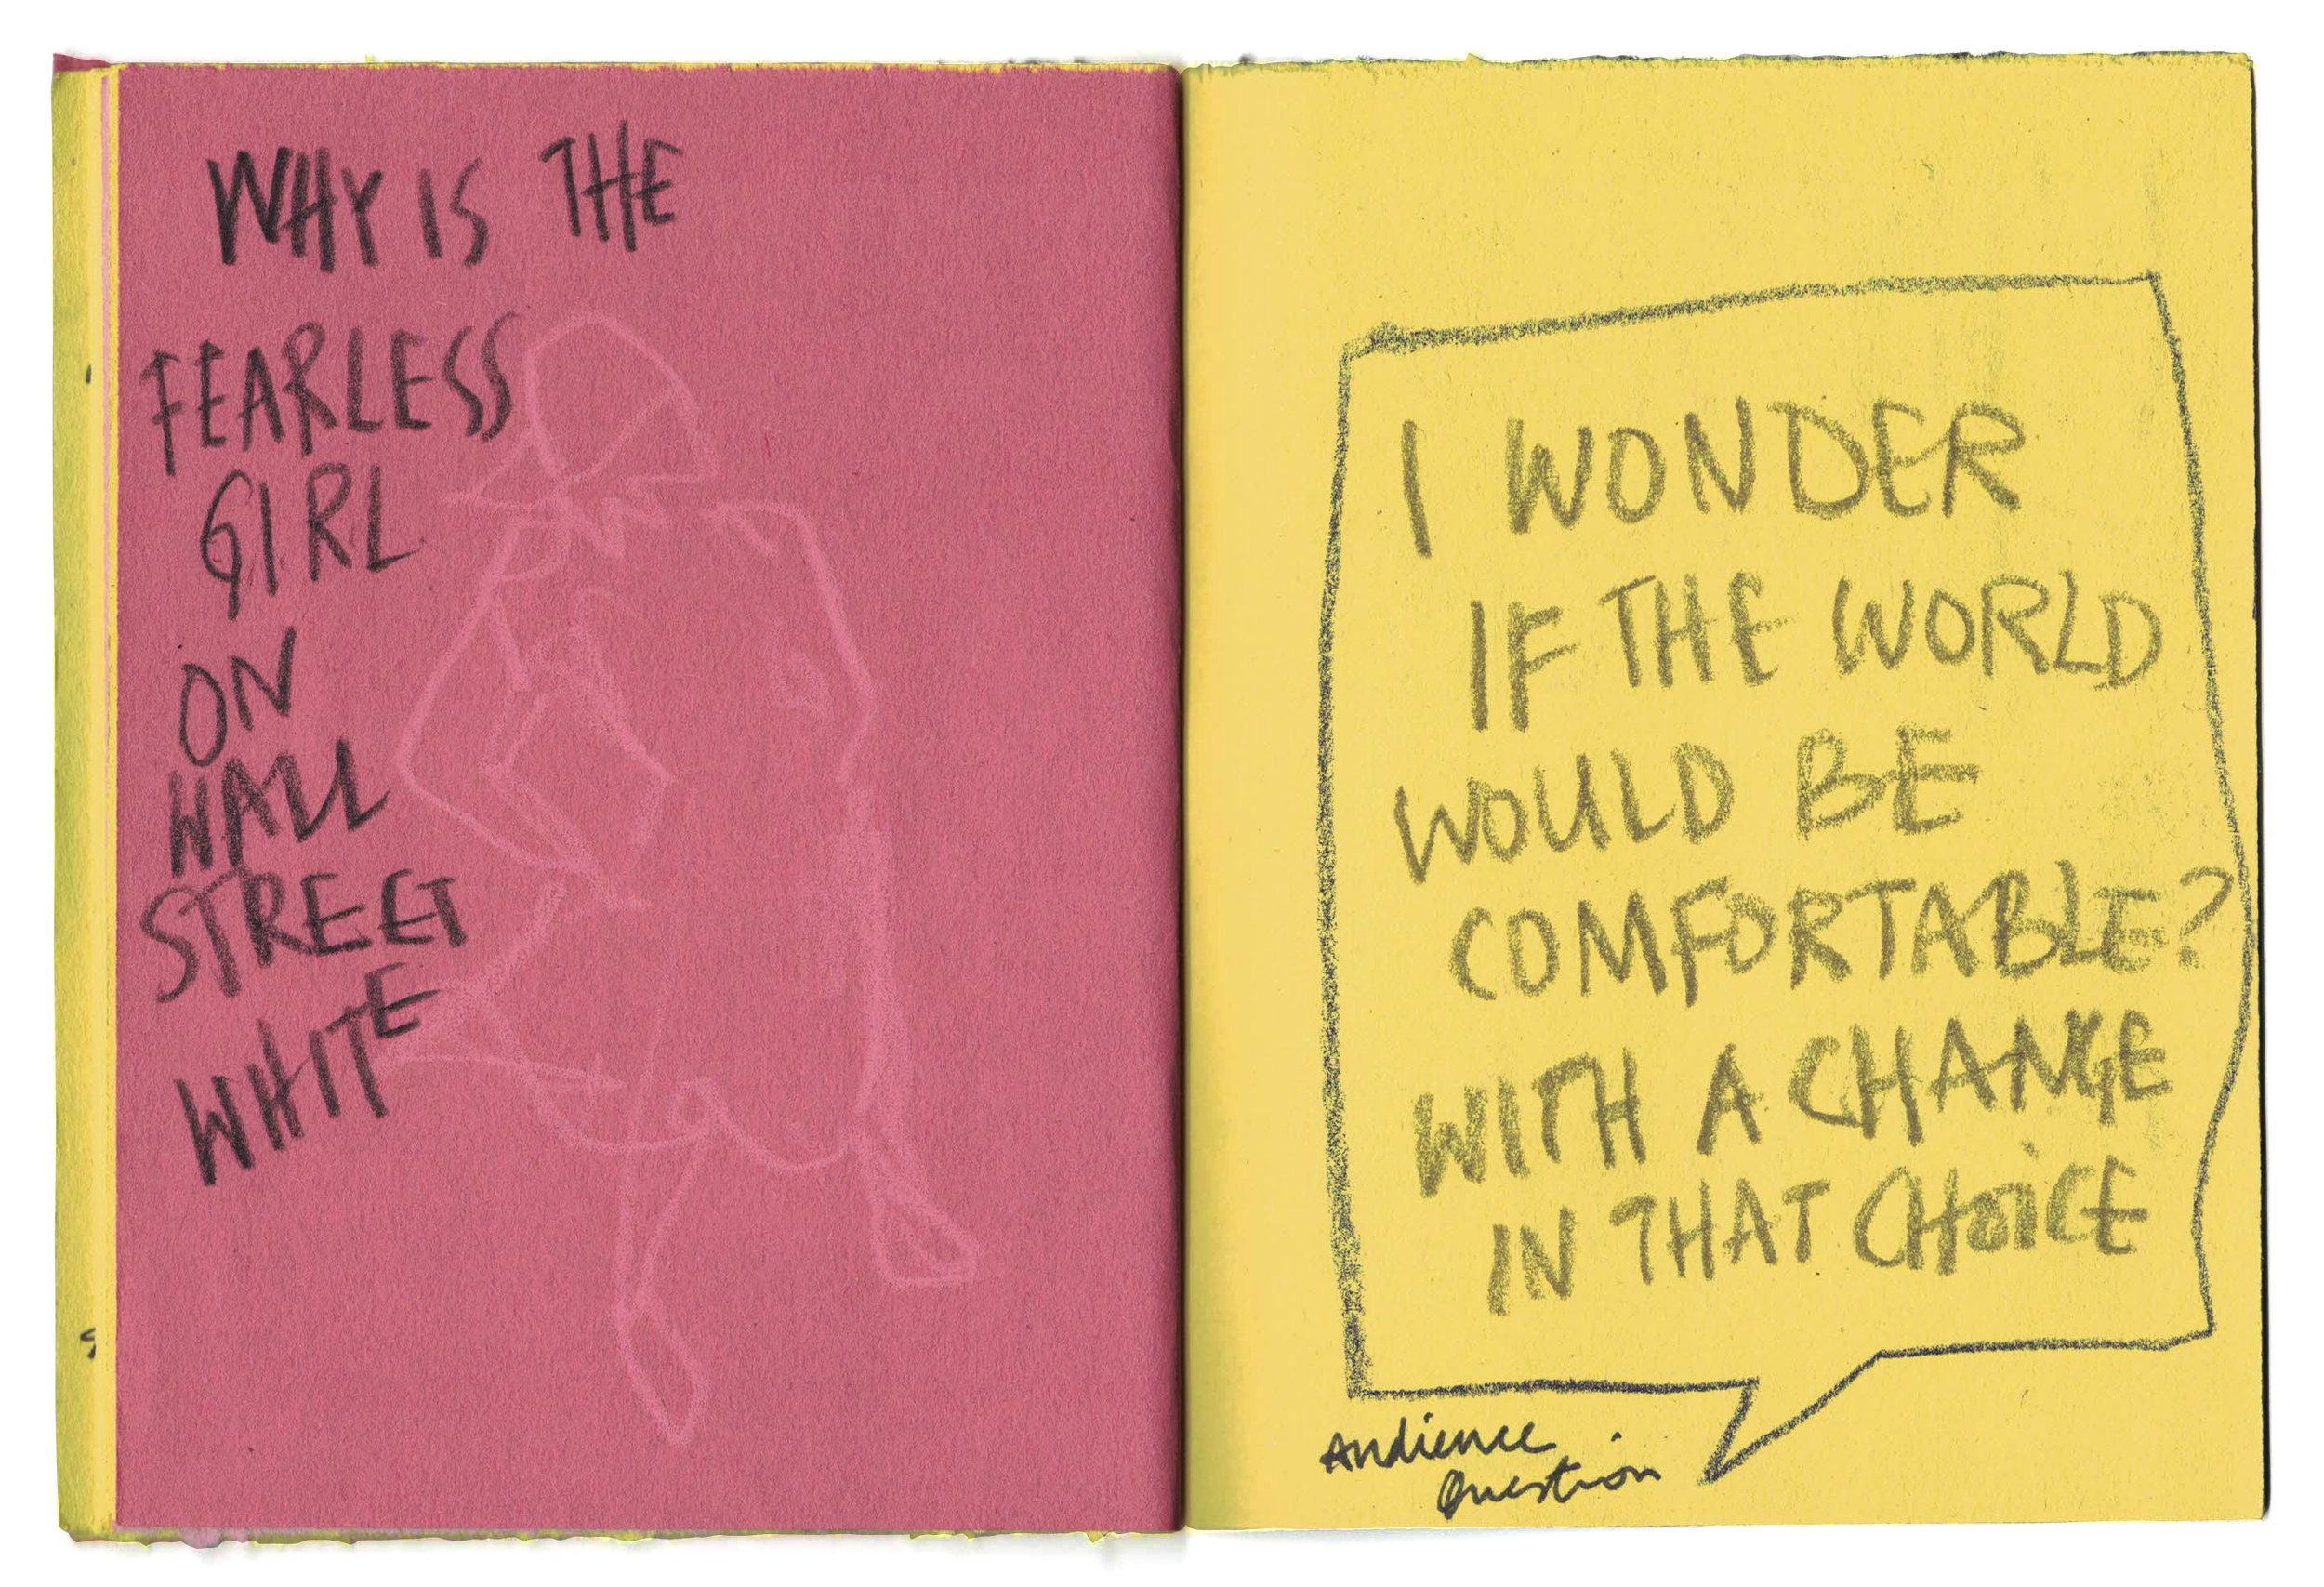 WHY IS THE
FEARLESS
GIRL
ON
WALL
STREET
WHITE
I WONDER
IF THE WORLD
WOULD BE
COMFORTABLE?
WITH A CHANGE
IN THAT CHOICE
Audience
Question